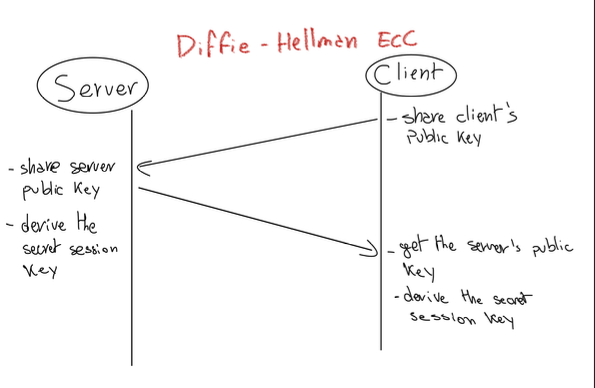 Diffie - Hellman ECC
Server
Client
- share client's
Public Key
- share server
public key
- derive the
secret session
key
- get the server's public
key
- derive the secret
session key